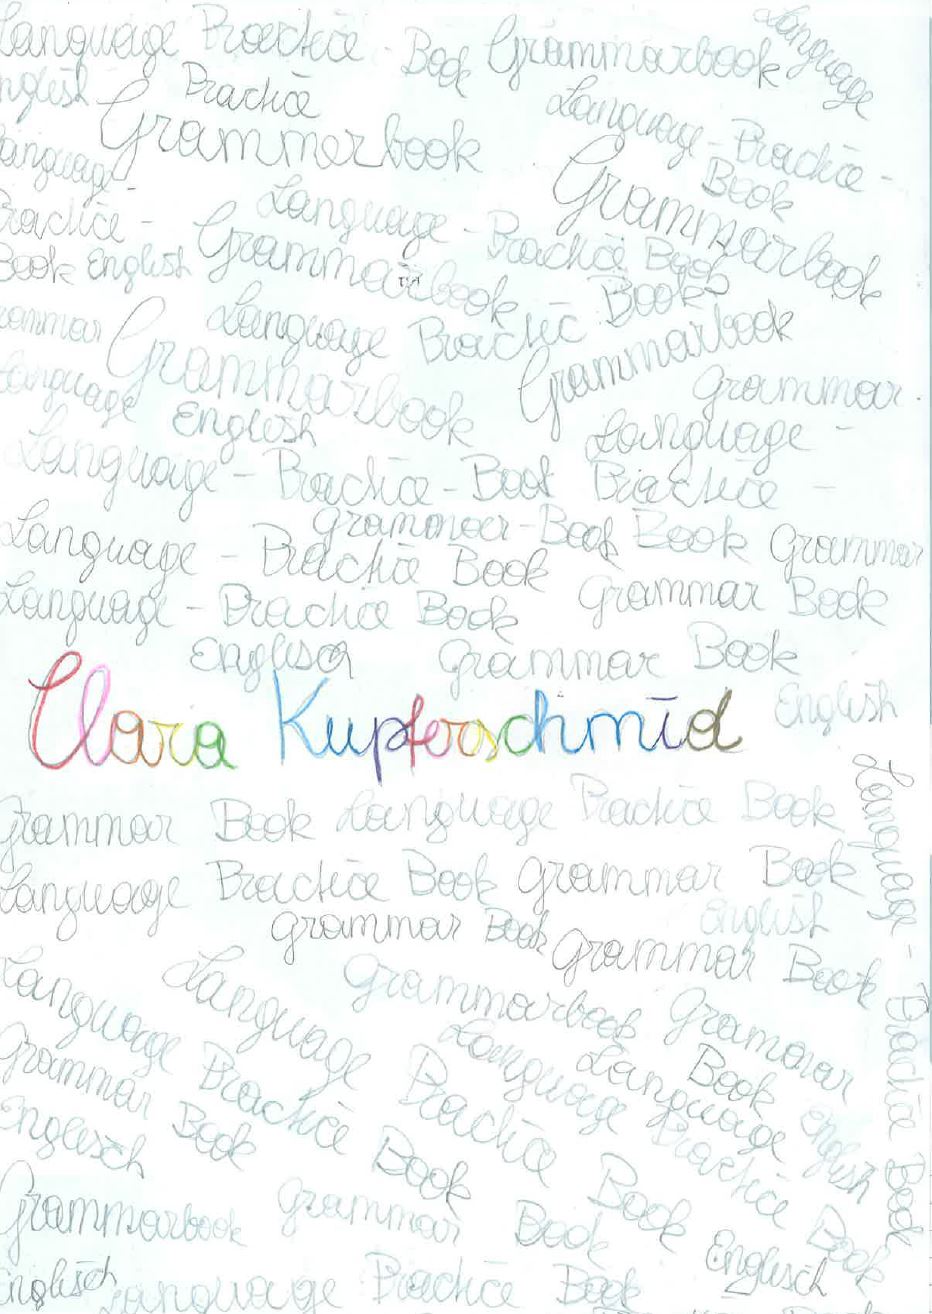 Language Practice - Book Grammarbook Language
English Practice
Grammerbook Language - Practice -
Language - Book
Practice - Language - Practice Book Grammarbook
Book English Grammarbook - Book
Grammar Language Practic Grammarbook
Language Grammarbook Grammar.
English Language -
Language - Practice - Book Practice -
Grammar - Book Book Grammar
Language - Practice Book
Language - Practice Book Grammar Book
Englisch Grammar Book
Clara Kupferschmid English
Grammar Book Language Practice Book
Language Practice Book Grammar Book
Grammar Book English
Grammar Book
Language - Practice Book
Language Practice Book
Language Practice Book
Grammarbook Grammar Book
Grammar Book
Language Language Practice Book
Englisch English
Grammarbook Grammar Book Englisch
Englisch Language Practice Book